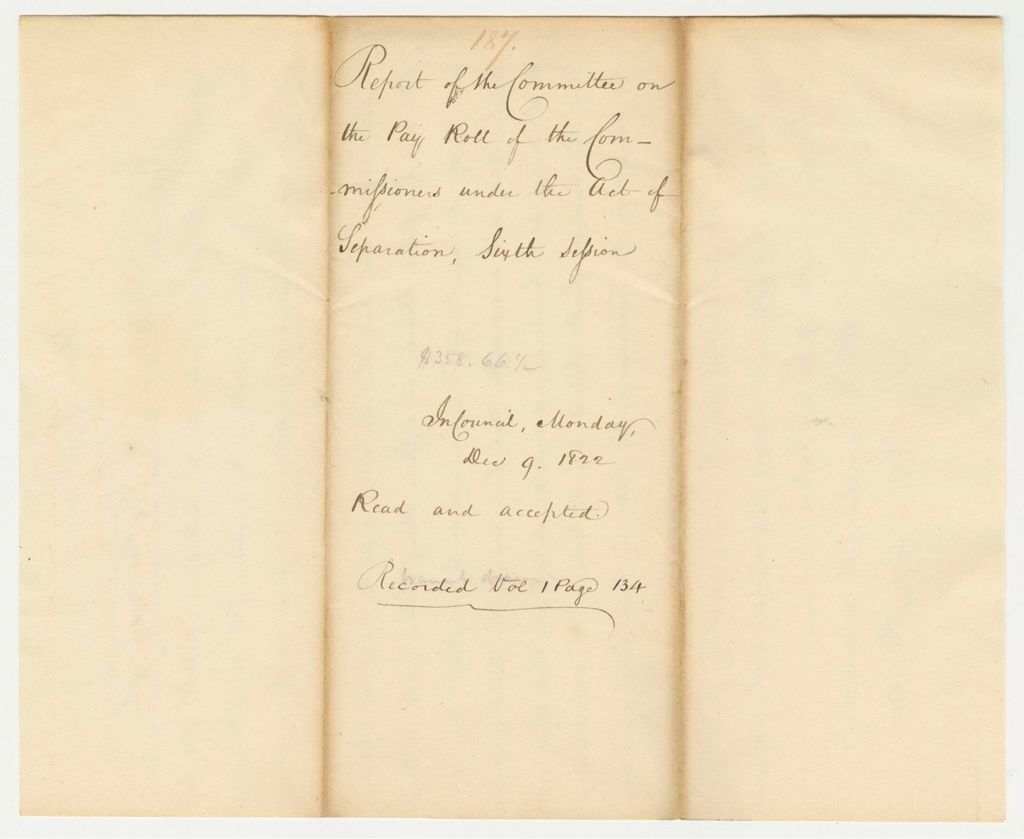 187.
Report of the Committee on
the Pay Roll of the Com-
-missioners under the Act of
Separation, Sixth Session
$358.66½
In Council, Monday,
Dec 9. 1822
Read and accepted.
Recorded Vol 1 Page 134